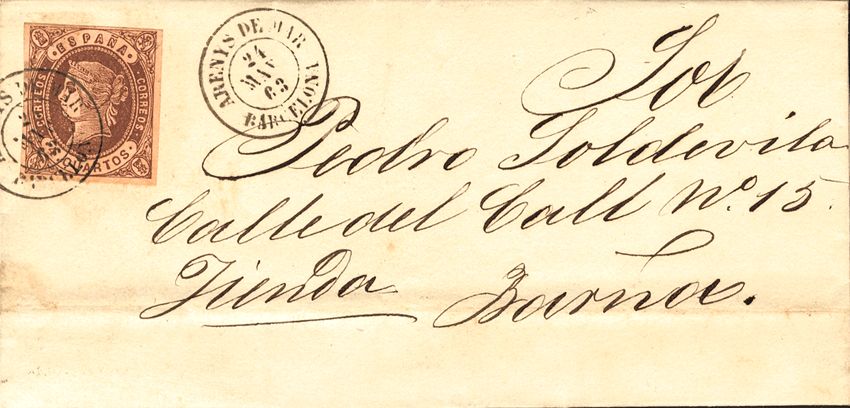 ESPAÑA
CORREOS
CORREOS
CUARTOS
ARENYS DE MAR
24
MAY
63
BARCELONA
Sor
Pedro Soldevila
Calle del Call Nº. 15.
Tienda Barna.